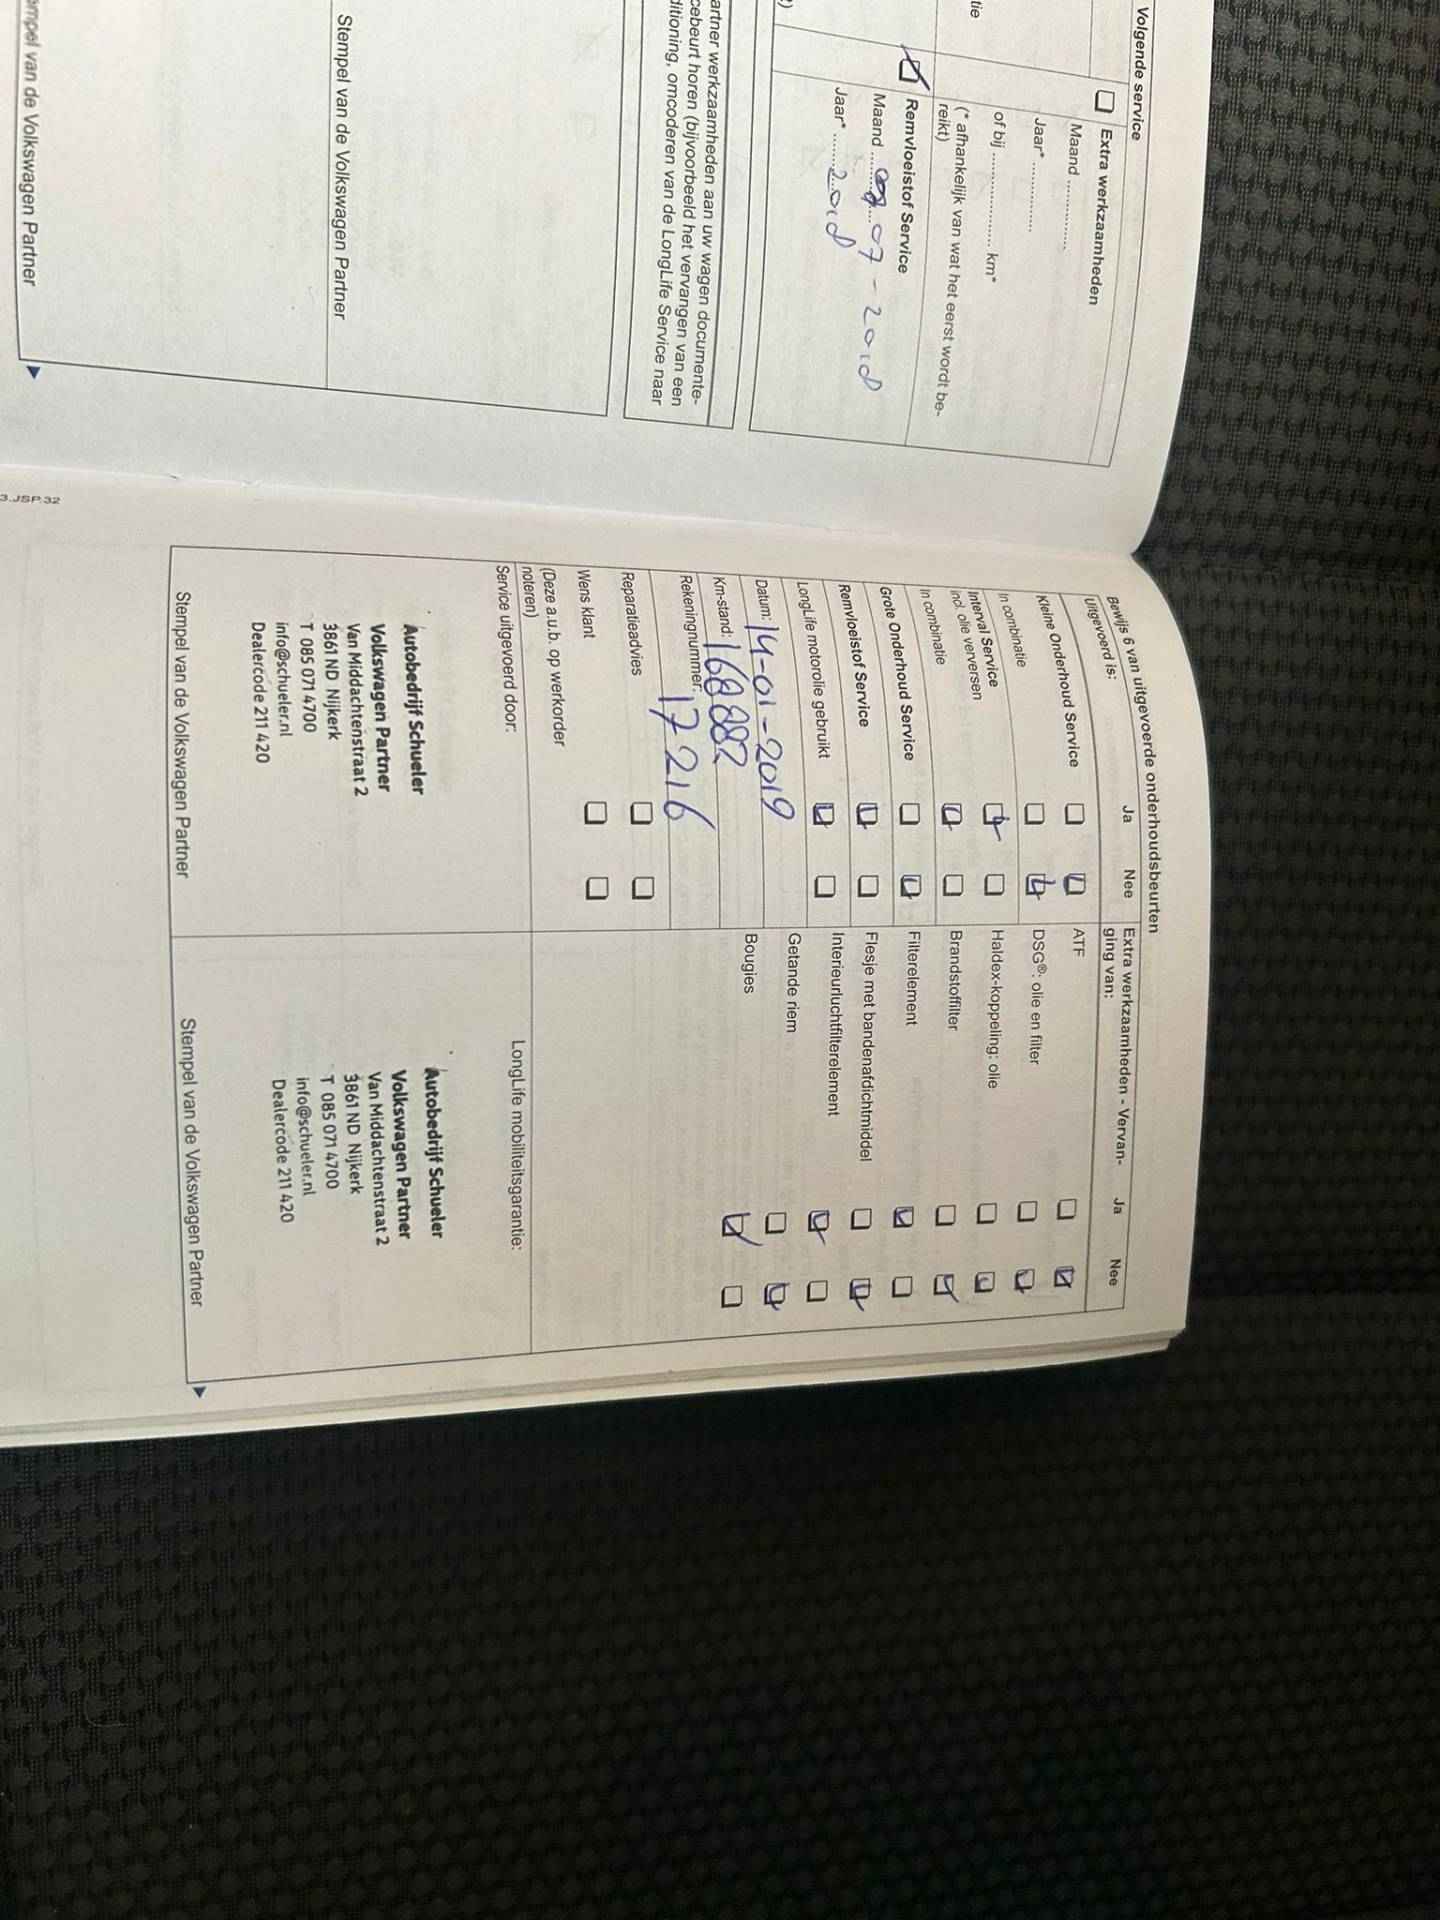 Volgende service
Extra werkzaamheden
Maand ..............
Jaar* ..............
of bij .................... km*
(* afhankelijk van wat het eerst wordt be-
reikt)
tie
Remvloeistof Service
Maand ... 07-2018
Jaar* ... 2018
artner werkzaamheden aan uw wagen documente-
cebeurt horen (bijvoorbeeld het vervangen van een
ditioning, omcoderen van de LongLife Service naar
Stempel van de Volkswagen Partner
empel van de Volkswagen Partner
Bewijs 6 van uitgevoerde onderhoudsbeurten
Uitgevoerd is: Ja Nee
Kleine Onderhoud Service
In combinatie
Interval Service
incl. olie verversen
In combinatie
Grote Onderhoud Service
Remvloeistof Service
LongLife motorolie gebruikt
Datum: 14-01-2019
Km-stand: 168882
Rekeningnummer: 17216
Reparatieadvies
Wens klant
(Deze a.u.b. op werkorder
noteren)
Service uitgevoerd door:
Autobedrijf Schueler
Volkswagen Partner
Van Middachtenstraat 2
3861 ND Nijkerk
T 085 071 4700
info@schueler.nl
Dealercode 211 420
Stempel van de Volkswagen Partner
Extra werkzaamheden - Vervan-
ging van: Ja Nee
ATF
DSG®: olie en filter
Haldex-koppeling: olie
Brandstoffilter
Filterelement
Flesje met bandenafdichtmiddel
Interieurluchtfilterelement
Getande riem
Bougies
LongLife mobiliteitsgarantie:
Autobedrijf Schueler
Volkswagen Partner
Van Middachtenstraat 2
3861 ND Nijkerk
T 085 071 4700
info@schueler.nl
Dealercode 211 420
Stempel van de Volkswagen Partner
3.JSP.32